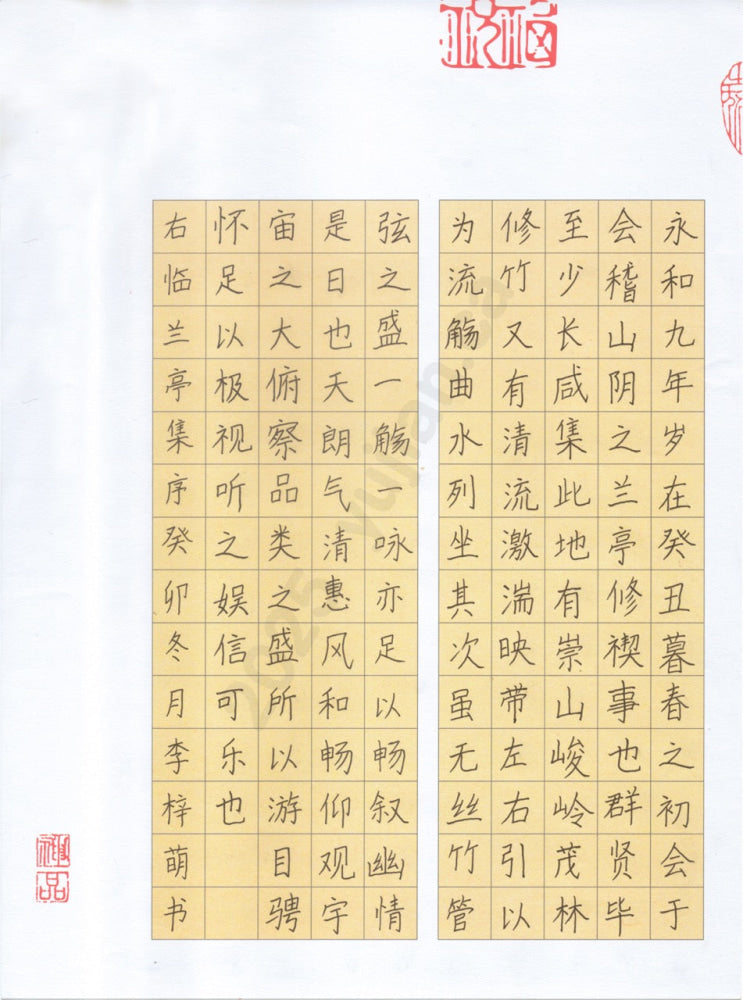 永和九年岁在癸丑暮春之初会于
会稽山阴之兰亭修禊事也群贤毕
至少长咸集此地有崇山峻岭茂林
修竹又有清流激湍映带左右引以
为流觞曲水列坐其次虽无丝竹管
弦之盛一觞一咏亦足以畅叙幽情
是日也天朗气清惠风和畅仰观宇
宙之大俯察品类之盛所以游目骋
怀足以极视听之娱信可乐也
右临兰亭集序癸卯冬月李梓萌书